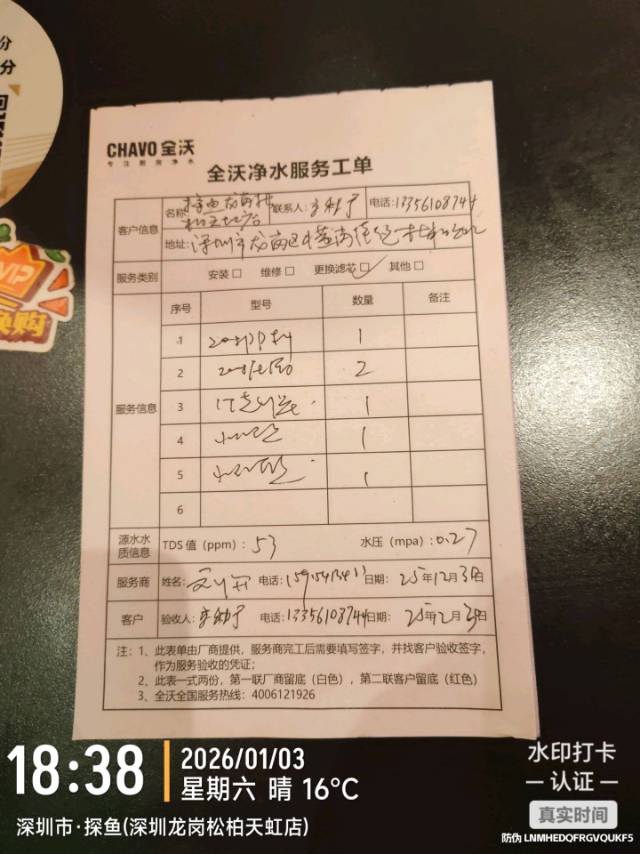 分
分
VIP
换购
CHAVO 全沃
专注厨房净水
全沃净水服务工单
客户信息
名称 探鱼龙岗松柏天虹店 联系人: 电话: 13356108744
地址: 深圳市龙岗区
服务类别 安装□ 维修□ 更换滤芯□✓ 其他□
服务信息
序号 型号 数量 备注
1 1
2 2
3 1
4 1
5 1
6
源水水质信息 TDS 值（ppm）: 53 水压（mpa）: 0.27
服务商 姓名: 电话: 日期: 25年12月3日
客户 验收人: 电话: 13356108744 日期: 25年12月3日
注：1、此表单由厂商提供，服务商完工后需要填写签字，并找客户验收签字，
作为服务验收的凭证；
2、此表一式两份，第一联厂商留底（白色），第二联客户留底（红色）
3、全沃全国服务热线：4006121926
18:38
2026/01/03
星期六 晴 16°C
深圳市·探鱼(深圳龙岗松柏天虹店)
水印打卡
认证
真实时间
防伪 LNMHEDQFRGVQUKF5